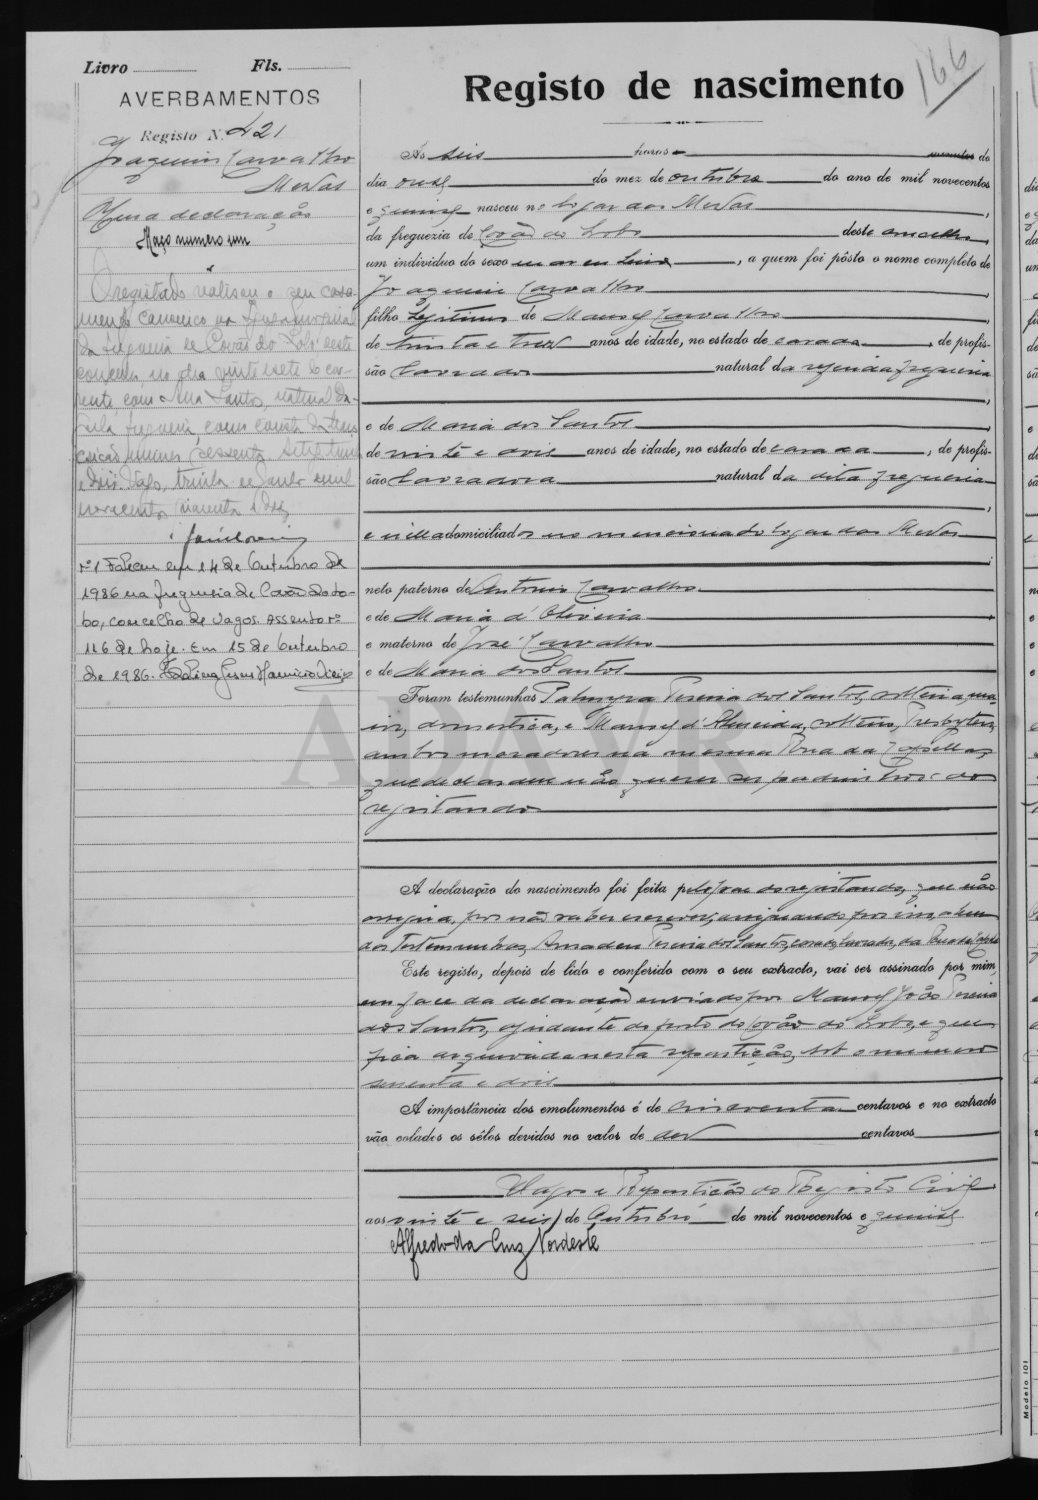 166
Livro Fls.
AVERBAMENTOS
Registo N.º 421
Joaquim Carvalho
Mesas
Uma declaração
Maço numero um
O registado realisou o seu casa-
mento canonico na
da freguesia de Covão do Lobo deste
concelho, no dia vinte e sete do cor-
rente, com Ana Santos, natural da-
quela freguesia, como consta da trans-
crição numero sessenta
e dois. Vagos, trinta de mil
novecentos quarenta e
nº 1 Faleceu em 14 de Outubro de
1986 na freguesia de Covão do Lo-
bo, concelho de Vagos. Assento nº
116 de hoje. Em 15 de Outubro
de 1986.
Registo de nascimento
Ás seis horas minutos do
dia onze do mez de outubro do ano de mil novecentos
e quinze nasceu no logar das Mesas,
da freguezia de Covão do Lobo deste concelho,
um individuo do sexo masculino, a quem foi pôsto o nome completo de
Joaquim Carvalho,
filho legitimo de Manoel Carvalho
de trinta e trez anos de idade, no estado de casado, de profis-
são lavrador natural da referida freguesia
,
e de Maria dos Santos
de vinte e dois anos de idade, no estado de casada, de profis-
são lavradora natural da dita freguesia
,
e domiciliados no mencionado logar das Mesas
;
neto paterno de Antonio Carvalho
e de Maria d'Oliveira
e materno de José Carvalho
e de Maria dos Santos.
Foram testemunhas Palmyra Pereira dos Santos, solteira, ma-
ior, domestica, e Manoel d'Almeida, solteiro, Presbytero,
ambos moradores na mesma Rua da Capella,
que declararam não querer ser padrinhos do
registando
A declaração do nascimento foi feita pelo pae do registando, que não
assigna, por não saber escrever, assignando por elle, alem
das testemunhas, Amadeu Pereira dos Santos, casado, lavrador, da Rua da Capella
Este registo, depois de lido e conferido com o seu extracto, vai ser assinado por mim,
em face da declaração enviada por Manoel João Pereira
dos Santos, ajudante do posto do Covão do Lobo, e que
fica arquivada nesta repartição, sob o numero
sessenta e dois
A importância dos emolumentos é de cincoenta centavos e no extracto
vão colados os sêlos devidos no valor de dez centavos
Vagos e Repartição do Registo Civil
aos vinte e seis de Outubro de mil novecentos e quinze
Alfredo da Cruz Nordeste
Modelo 101